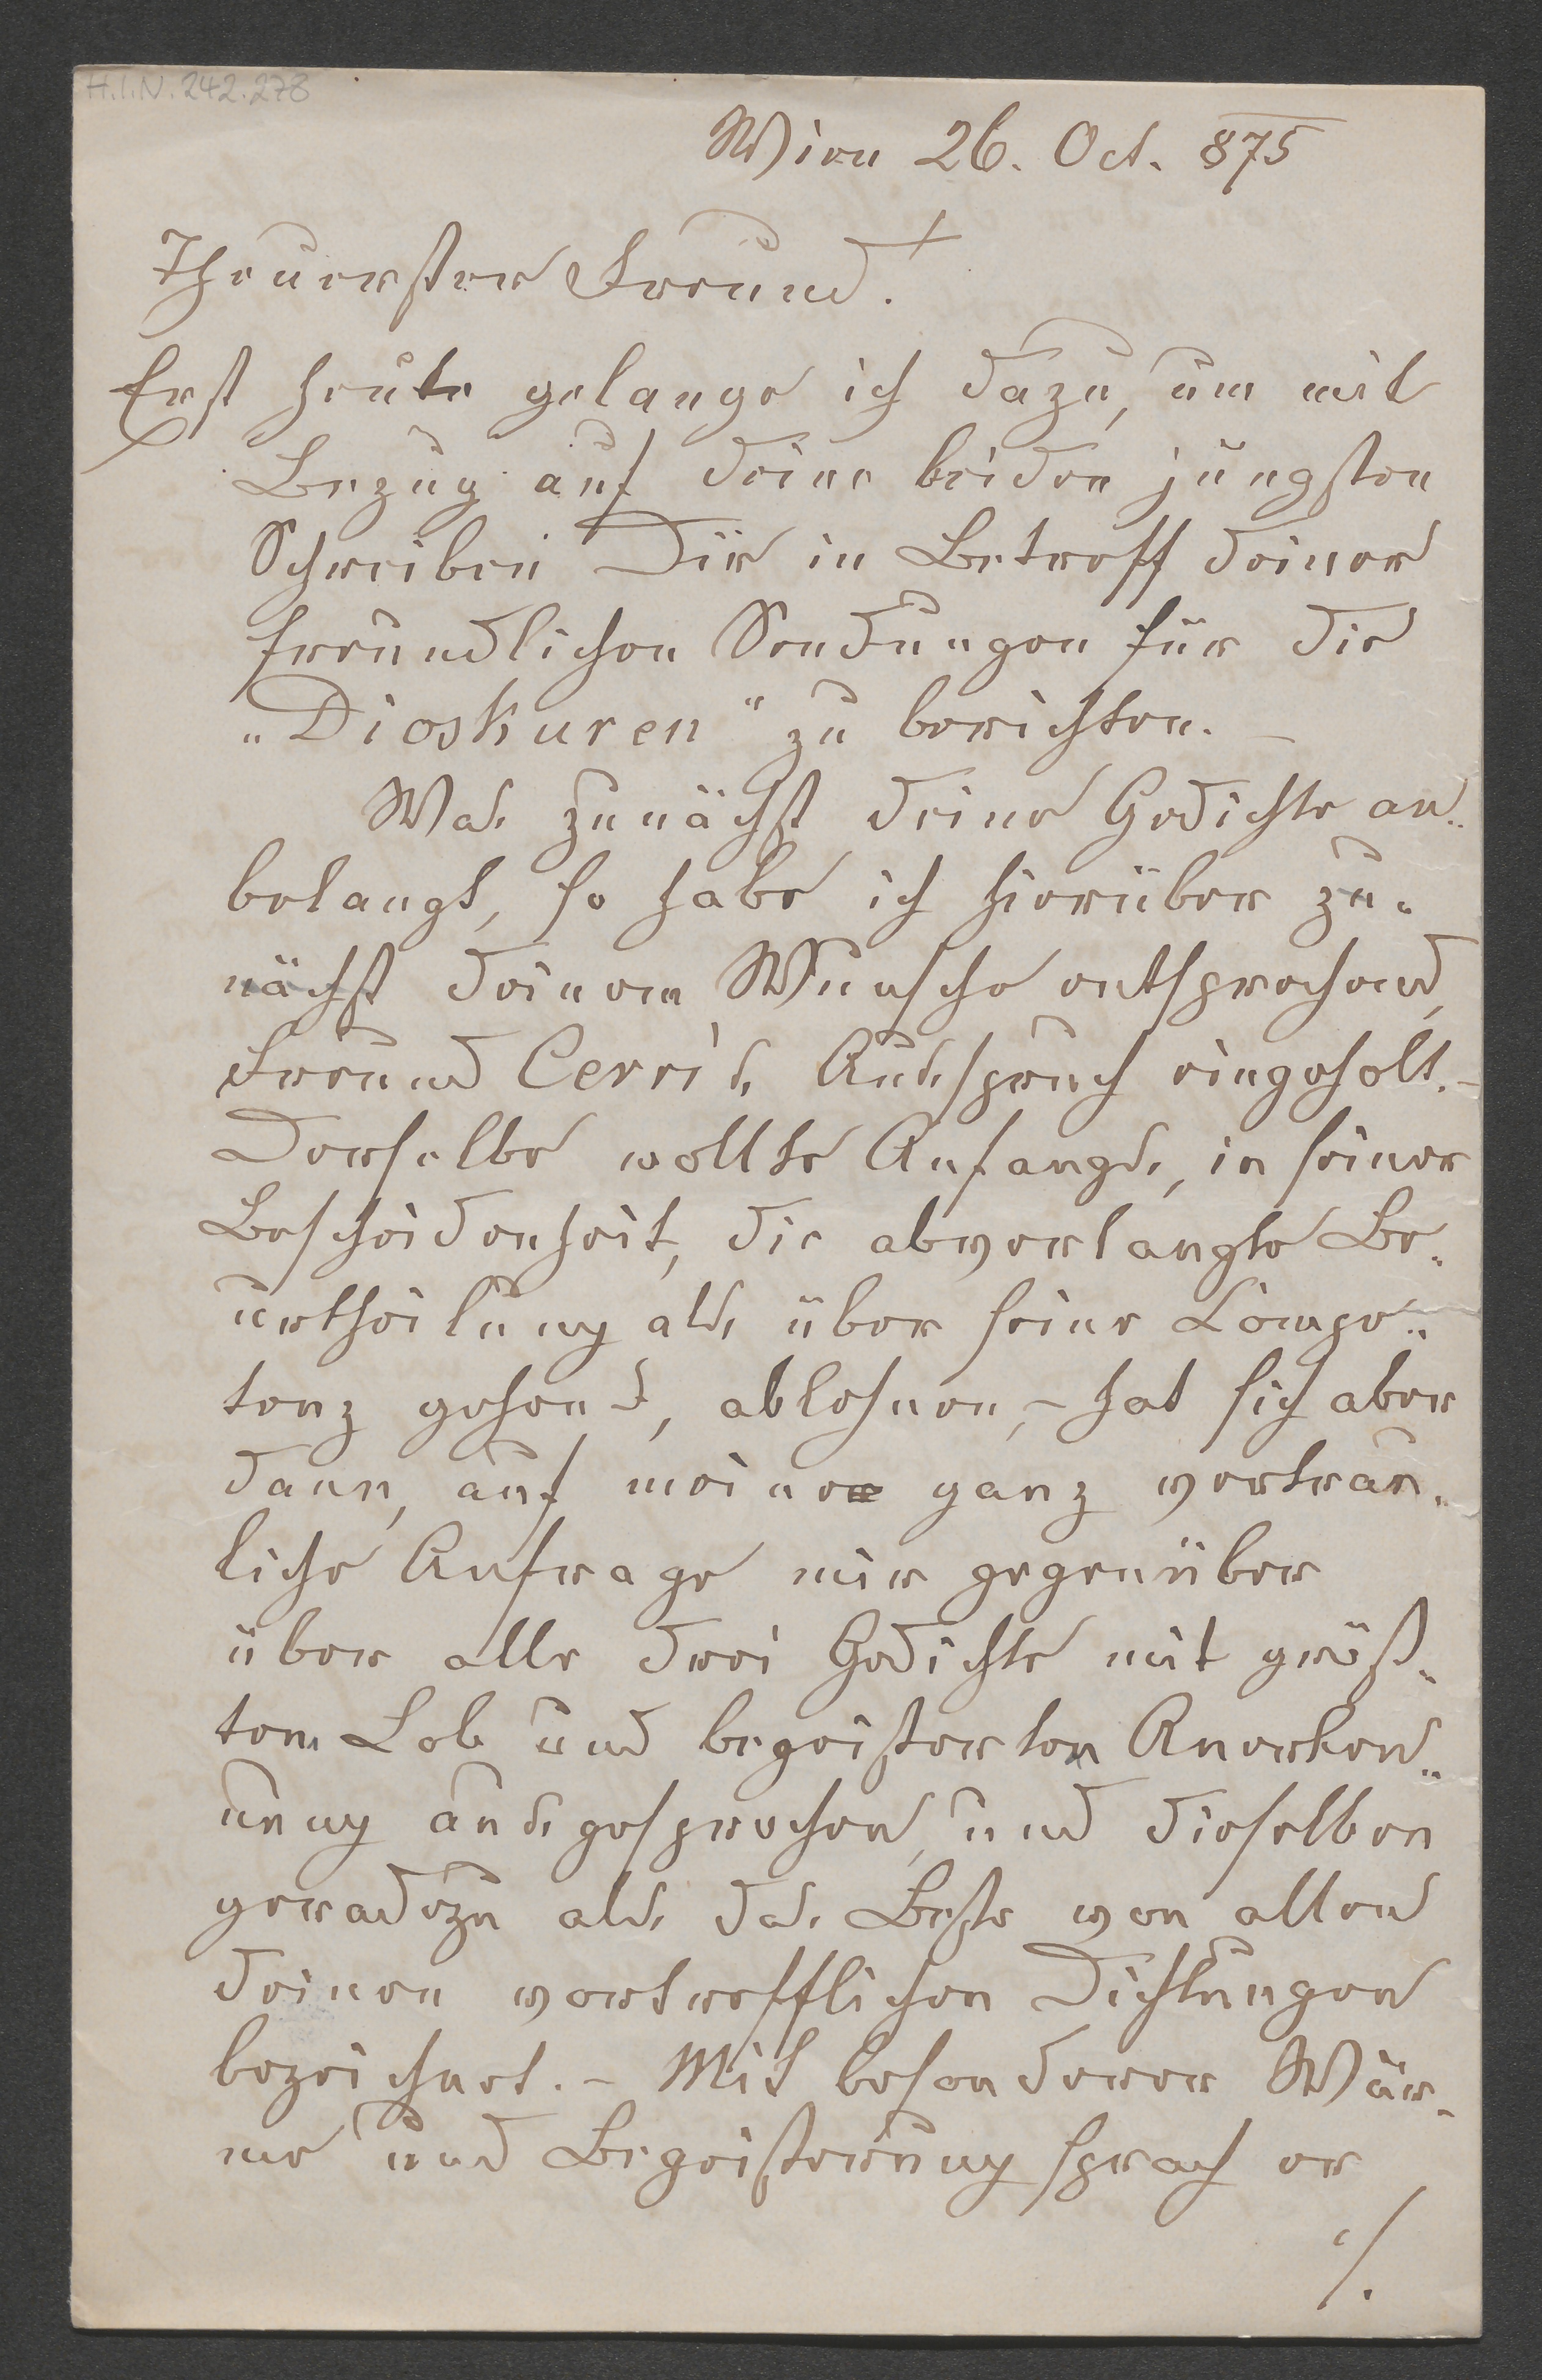 H.I.N. 242.278
Wien 26. Oct. 875
Theuerster Freund!
Erst heute gelange ich dazu, um mit
Bezug auf deine beiden jüngsten
Schreiben Dir in Betreff deiner
freundlichen Sendungen für die
„Dioskuren" zu berichten. –
Was zunächst deine Gedichte an-
belangt, so habe ich hierüber zu-
nächst deinem Wunsche entsprechend,
Freund Cerri's Ausspruch eingeholt. –
Derselbe wollte Anfangs, in seiner
Bescheidenheit, die abverlangte Be-
urtheilung als über seine Compe-
tenz gehend, ablehnen, – hat sich aber
dann, auf meine ganz vertrau-
liche Anfrage mir gegenüber
über alle drei Gedichte mit größ-
tem Lob und begeisterten Anerken-
nung ausgesprochen, und dieselben
geradezu als das Beste von allen
deinen vortrefflichen Dichtungen
bezeichnet. – Mit besonderer Wär-
me und Begeisterung sprach er
./.